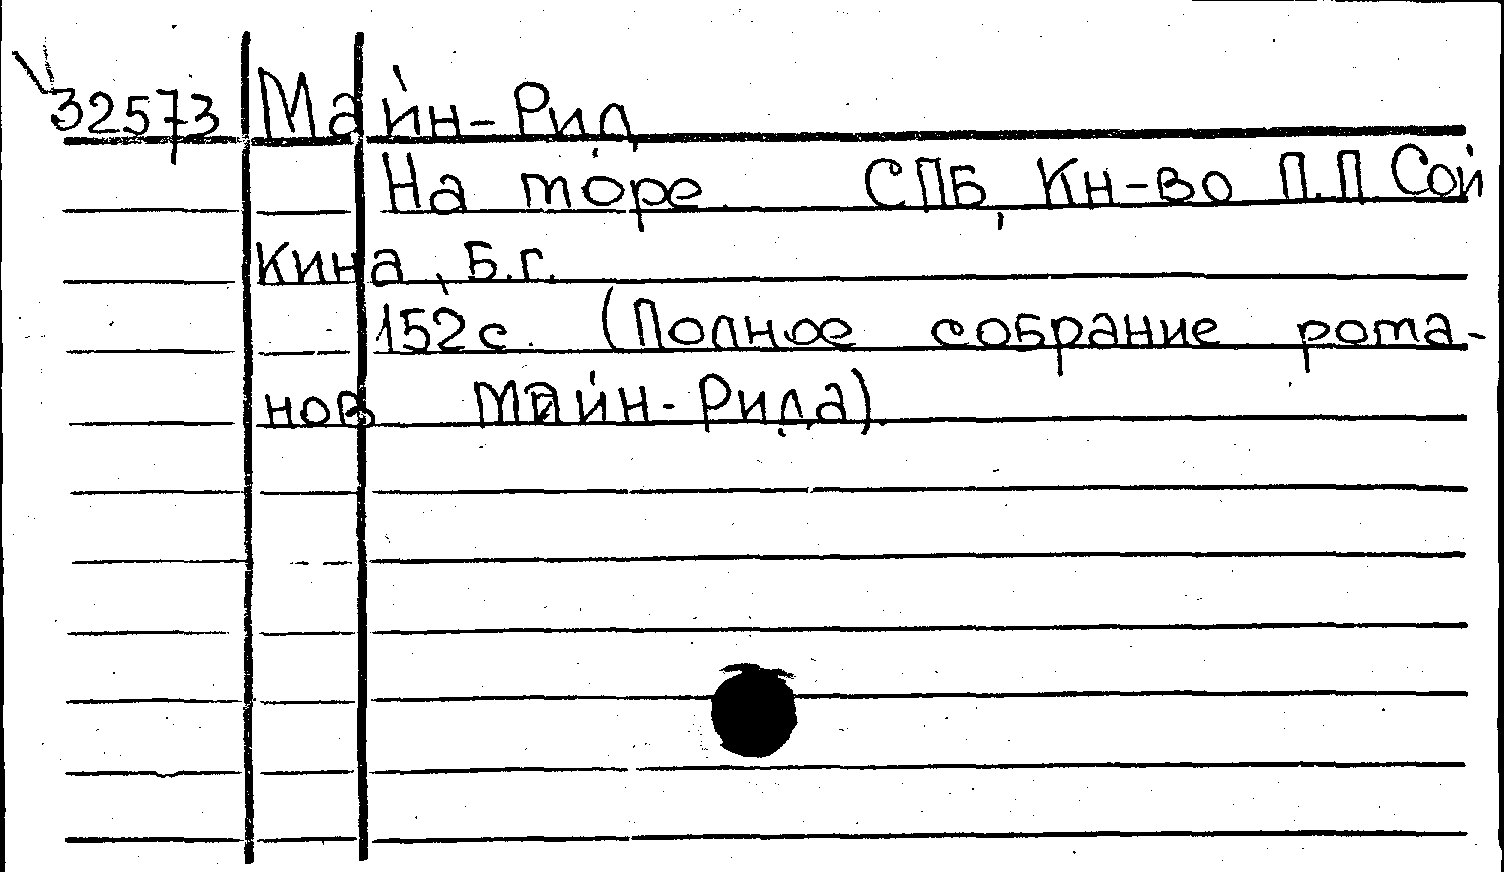 32573 Майн-Рид
На море. СПБ, Кн-во П.П Сой
кина, Б.г.
152с. (Полное собрание рома-
нов Майн-Рида).